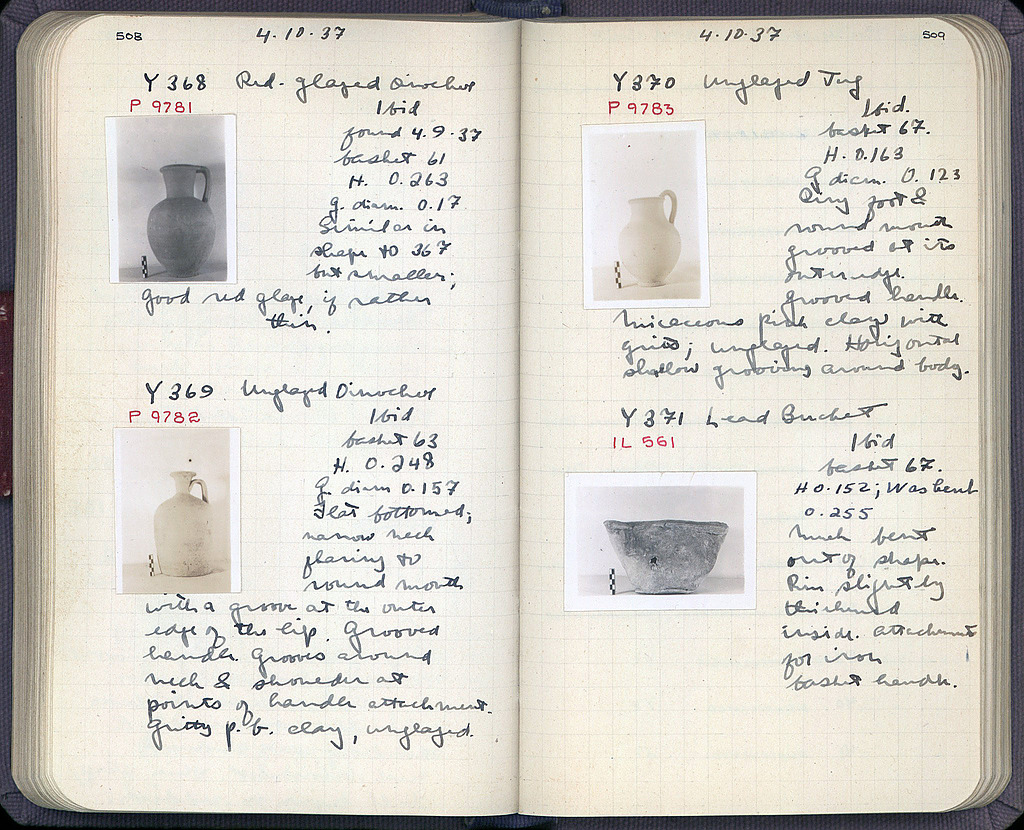 508
4.10.37
Y 368 Red-glazed Oinochoe
P 9781
Ibid
found 4.9.37
basket 61
H. 0.263
g. diam. 0.17
Similar in
shape to 367
but smaller;
good red glaze, if rather
thin.
Y 369 Unglazed Oinochoe
P 9782
Ibid
basket 63
H. 0.248
g. diam 0.157
Flat bottomed;
narrow neck
flaring to
round mouth
with a groove at the outer
edge of the lip. Grooved
handle. Grooves around
neck & shoulder at
points of handle attachment.
Gritty p.b. clay, unglazed.
509
4.10.37
Y 370 Unglazed Jug
P 9783
Ibid.
basket 67.
H. 0.163
g diam. 0.123
Ring foot &
round mouth
grooved at its
outer edge.
Grooved handle.
Micaceous pink clay with
grits; unglazed. Horizontal
shallow grooving around body.
Y 371 Lead Bucket
IL 561
Ibid
basket 67.
H 0.152;
0.255
Much bent
out of shape.
Rim slightly
thickened
inside. Attachments
for iron
basket handle.